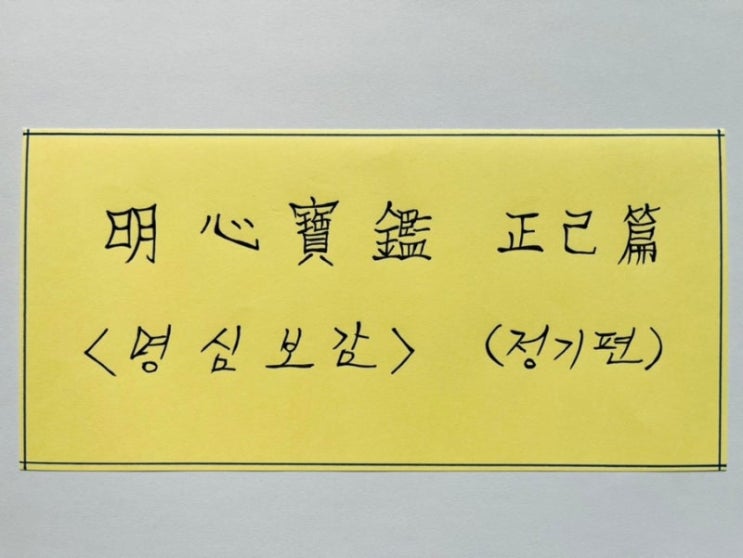 明心寶鑑 正己篇
<명심보감> (정기편)